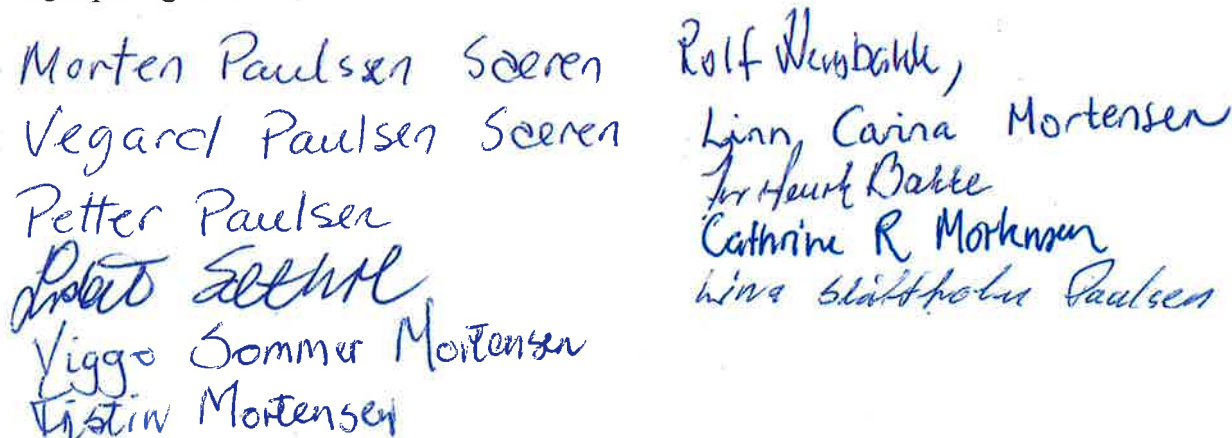 Morten Paulsen Særen
Vegard Paulsen Særen
Petter Paulsen
Viggo Sommer Mortensen
Mortensen
Rolf
Linn, Carina Mortensen
Bakke
Cathrine R Mortensen
Lina Slåttholm Paulsen